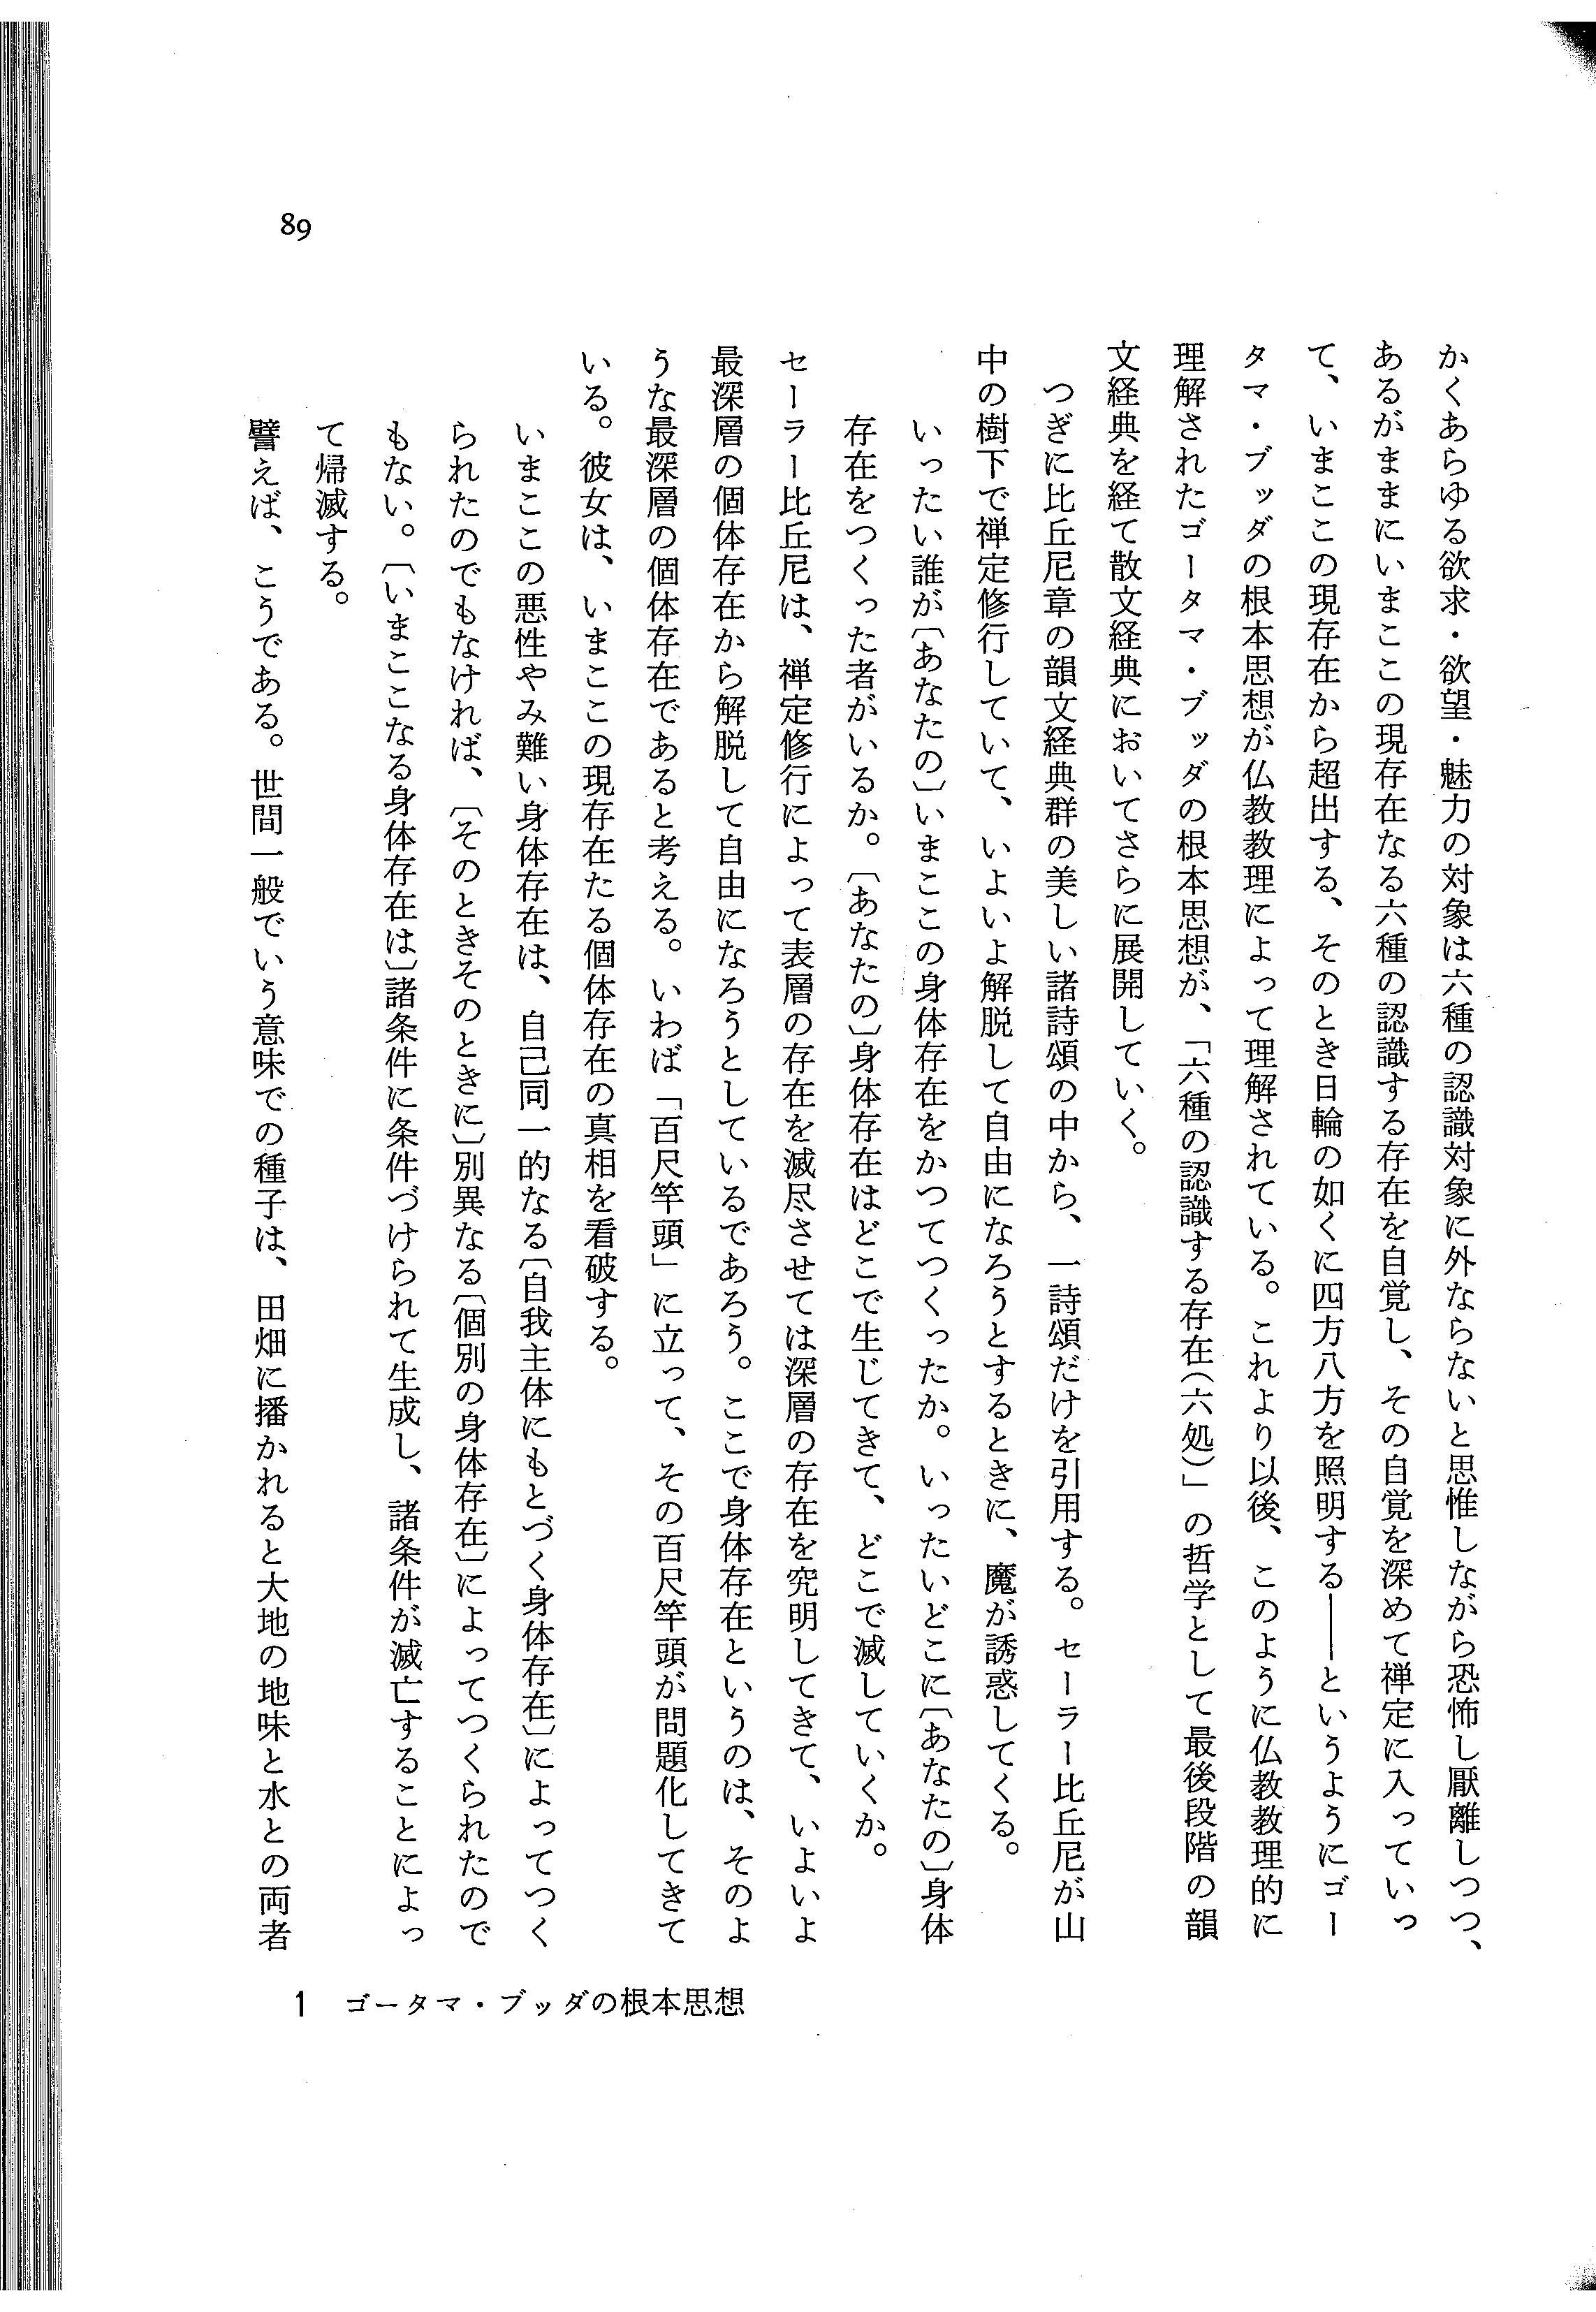 かくあらゆる欲求・欲望・魅力の対象は六種の認識対象に外ならないと思惟しながら恐怖し厭離しつつ、
あるがままにいまここの現存在なる六種の認識する存在を自覚し、その自覚を深めて禅定に入っていっ
て、いまここの現存在から超出する、そのとき日輪の如くに四方八方を照明する――というようにゴー
タマ・ブッダの根本思想が仏教教理によって理解されている。これより以後、このように仏教教理的に
理解されたゴータマ・ブッダの根本思想が、「六種の認識する存在(六処)」の哲学として最後段階の韻
文経典を経て散文経典においてさらに展開していく。
つぎに比丘尼章の韻文経典群の美しい諸詩頌の中から、一詩頌だけを引用する。セーラー比丘尼が山
中の樹下で禅定修行していて、いよいよ解脱して自由になろうとするときに、魔が誘惑してくる。
いったい誰が〔あなたの〕いまここの身体存在をかつてつくったか。いったいどこに〔あなたの〕身体
存在をつくった者がいるか。〔あなたの〕身体存在はどこで生じてきて、どこで滅していくか。
セーラー比丘尼は、禅定修行によって表層の存在を滅尽させては深層の存在を究明してきて、いよいよ
最深層の個体存在から解脱して自由になろうとしているであろう。ここで身体存在というのは、そのよ
うな最深層の個体存在であると考える。いわば「百尺竿頭」に立って、その百尺竿頭が問題化してきて
いる。彼女は、いまここの現存在たる個体存在の真相を看破する。
いまここの悪性やみ難い身体存在は、自己同一的なる〔自我主体にもとづく身体存在〕によってつく
られたのでもなければ、〔そのときそのときに〕別異なる〔個別の身体存在〕によってつくられたので
もない。〔いまここなる身体存在は〕諸条件に条件づけられて生成し、諸条件が滅亡することによっ
て帰滅する。
譬えば、こうである。世間一般でいう意味での種子は、田畑に播かれると大地の地味と水との両者
89
1 ゴータマ・ブッダの根本思想